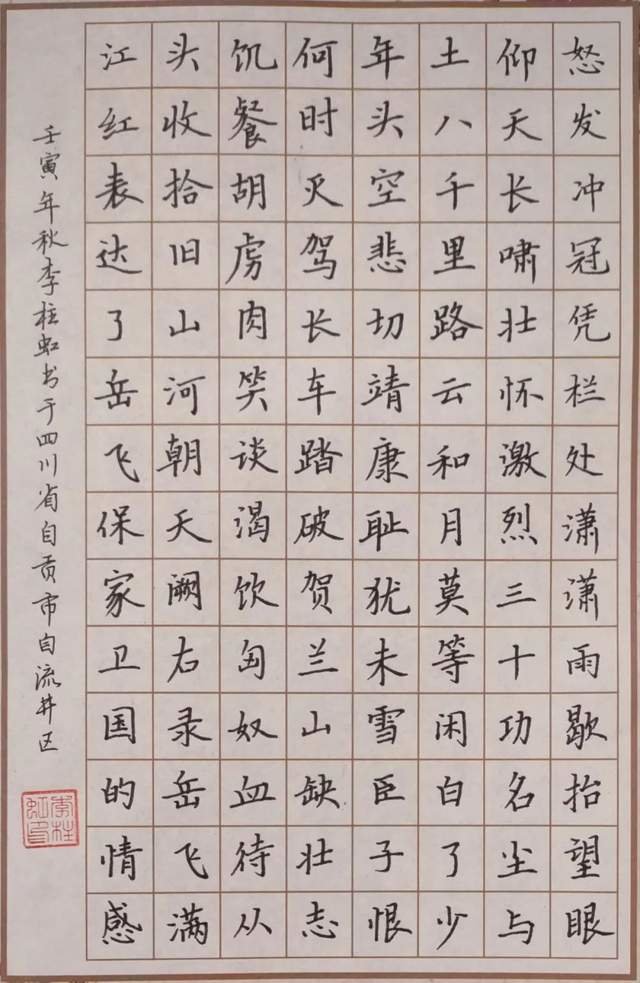 怒发冲冠凭栏处潇潇雨歇抬望眼
仰天长啸壮怀激烈三十功名尘与
土八千里路云和月莫等闲白了少
年头空悲切靖康耻犹未雪臣子恨
何时灭驾长车踏破贺兰山缺壮志
饥餐胡虏肉笑谈渴饮匈奴血待从
头收拾旧山河朝天阙右录岳飞满
江红表达了岳飞保家卫国的情感
壬寅年秋李柱虹书于四川省自贡市自流井区
李柱虹印